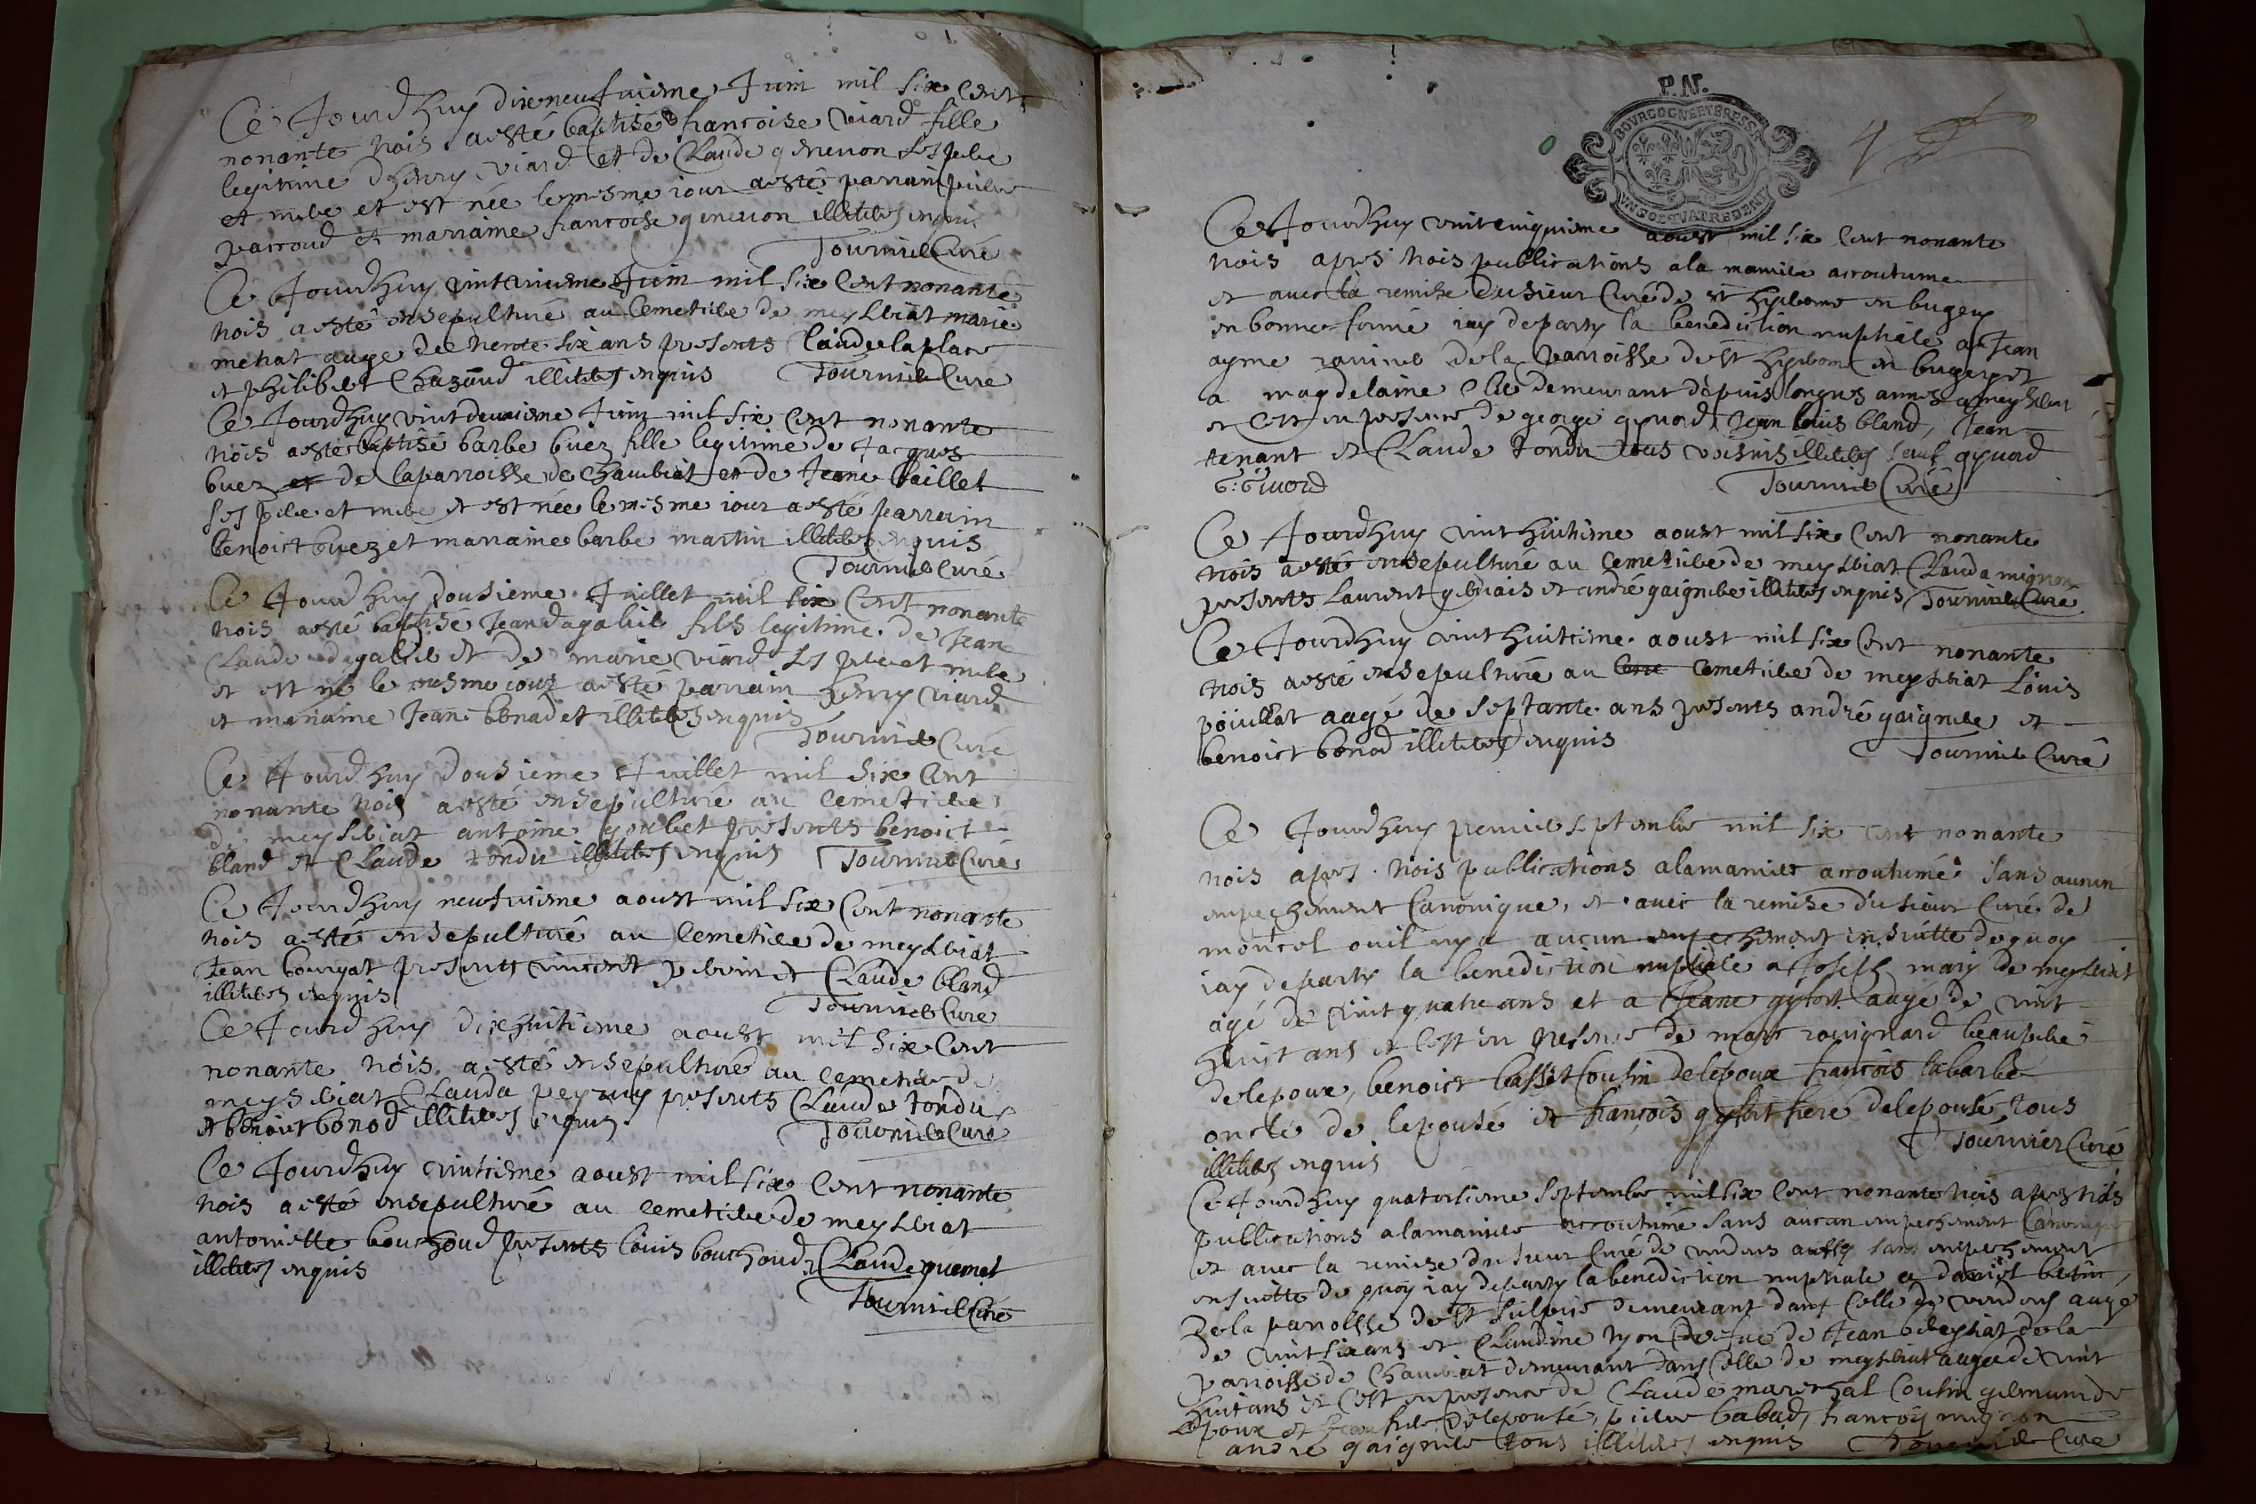 Ce Jourdhuy dixneufuieme Juin mil six Cent
nonante trois a esté baptisé francoise viard fille
legitime dhenry viard et de Claude genevon ses pere
et mere et est née le mesme iour a esté parrain pierre
parroud et marraine francoise genevon illiteres enquis
Tournier Curé
Ce Jourdhuy vintunieme Juin mil six Cent nonante
trois a esté ensepulturé au Cemetiere de meyseriat marie
aagé de trente six ans presents Claude laplace
et philibert Chazaud illiteres enquis Tournier Curé
Ce Jourdhuy vint deuxieme Juin mil six Cent nonante
trois a esté baptisé barbe buez fille legitime de Jacques
buez et de laparroisse de Chaveiriat et de Jeane baillet
ses pere et mere et est née le mesme iour a esté parrain
benoict buez et marraine barbe martin illiteres enquis
Tournier Curé
Ce Jourdhuy dousieme Juillet mil six Cent nonante
trois a esté baptisé Jean dagallier fils legitime de Jean
Claude dagallier et de marie viard ses pere et mere
et est né le mesme iour a esté parrain henry viard
et maraine Jeane benadet illiteres enquis
Tournier Curé
Ce Jourdhuy dousieme Juillet mil six Cent
nonante trois a esté ensepulturé au Cemetiere
de meyseriat antoine goubet presents benoict
bland et Claude tondu illiteres enquis Tournier Curé
Ce Jourdhuy neufuieme aoust mil six Cent nonante
trois a esté ensepulturé au Cemetiere de meyseriat
Jean bourgat presents vincent et Claude bland
illiteres enquis Tournier Curé
Ce Jourdhuy dixhuitieme aoust mil six Cent
nonante trois a esté ensepulturé au Cemetiere de
meyseriat Clauda presents Claude tondu
et benoict bonod illiteres enquis Tournier Curé
Ce Jourdhuy vintieme aoust mil six Cent nonante
trois a esté ensepulturé au Cemetiere de meyseriat
antoinette bouchoud presents louis bouchoud, Claude
illiteres enquis
Tournier Curé
P.N.
BOURGOGNE ET BRESSE
UN SOL QUATRE DEN
Ce Jourdhuy vint cinquieme aoust mil six Cent nonante
trois apres trois publications a la maniere accoutumee
et avec la remise du sieur Curé de st en bugey
en bonne forme iay departy la benediction nuptiale a Jean
ayme de la parroisse de st en bugey et
a magdelaine demeurant depuis longues annes a meyseriat
et Cest en presence de george gyuord, Jean louis bland, Jean
tenant et Claude tondu tous voisins illiteres sauf gyuord
G: Giuord Tournier Curé
Ce Jourdhuy vint huitieme aoust mil six Cent nonante
trois a esté ensepulturé au Cemetiere de meyseriat Clauda mignon
presents Laurent et andré gaignere illiteres enquis Tournier Curé
Ce Jourdhuy vint huitieme aoust mil six Cent nonante
trois a esté ensepulturé au Cemetiere de meyseriat Louis
poiullat aagé de septante ans presents andré gaignere et
benoict bonod illiteres enquis Tournier Curé
Ce Jourdhuy premier septembre mil six Cent nonante
trois apres trois publications alamaniere accoutumé sans aucun
empechement Canonique, et avec la remise du sieur Curé de
moncel ou il ny a aucun empechement ensuitte dequoy
iay departy la benediction nuptiale a Joseph mary de meyseriat
agé de vint quatre ans et a Jeane gyfort aagé de vint
huict ans et Cest en presence de marc rouignard beaupere
delepoux, benoict basset Cousin delepoux francois labarbe
oncle de lepousé et francois gyfort frere delepousé tous
illiteres enquis Tournier Curé
Ce Jourdhuy quatorsieme septembre mil six Cent nonante trois apres trois
publications alamaniere accoutumé sans aucun empechement Canonique
et avec la remise du sieur Curé de vendens aussy sans empechement
ensuitte de quoy iay departy la benediction nuptiale a
dela parroisse de st sulpice demeurant dans Celle de vendens aagé
de vint six ans et Claudine de Jean dela
parroisse de Chaveiriat demeurant dans Celle de meyseriat aagé de vint
huit ans et Cest en presence de Claude mareschal Cousin germain de
lepoux et frere delepousé, pierre babad, francois mignon
andre gaignere tous illiteres enquis Tournier Curé